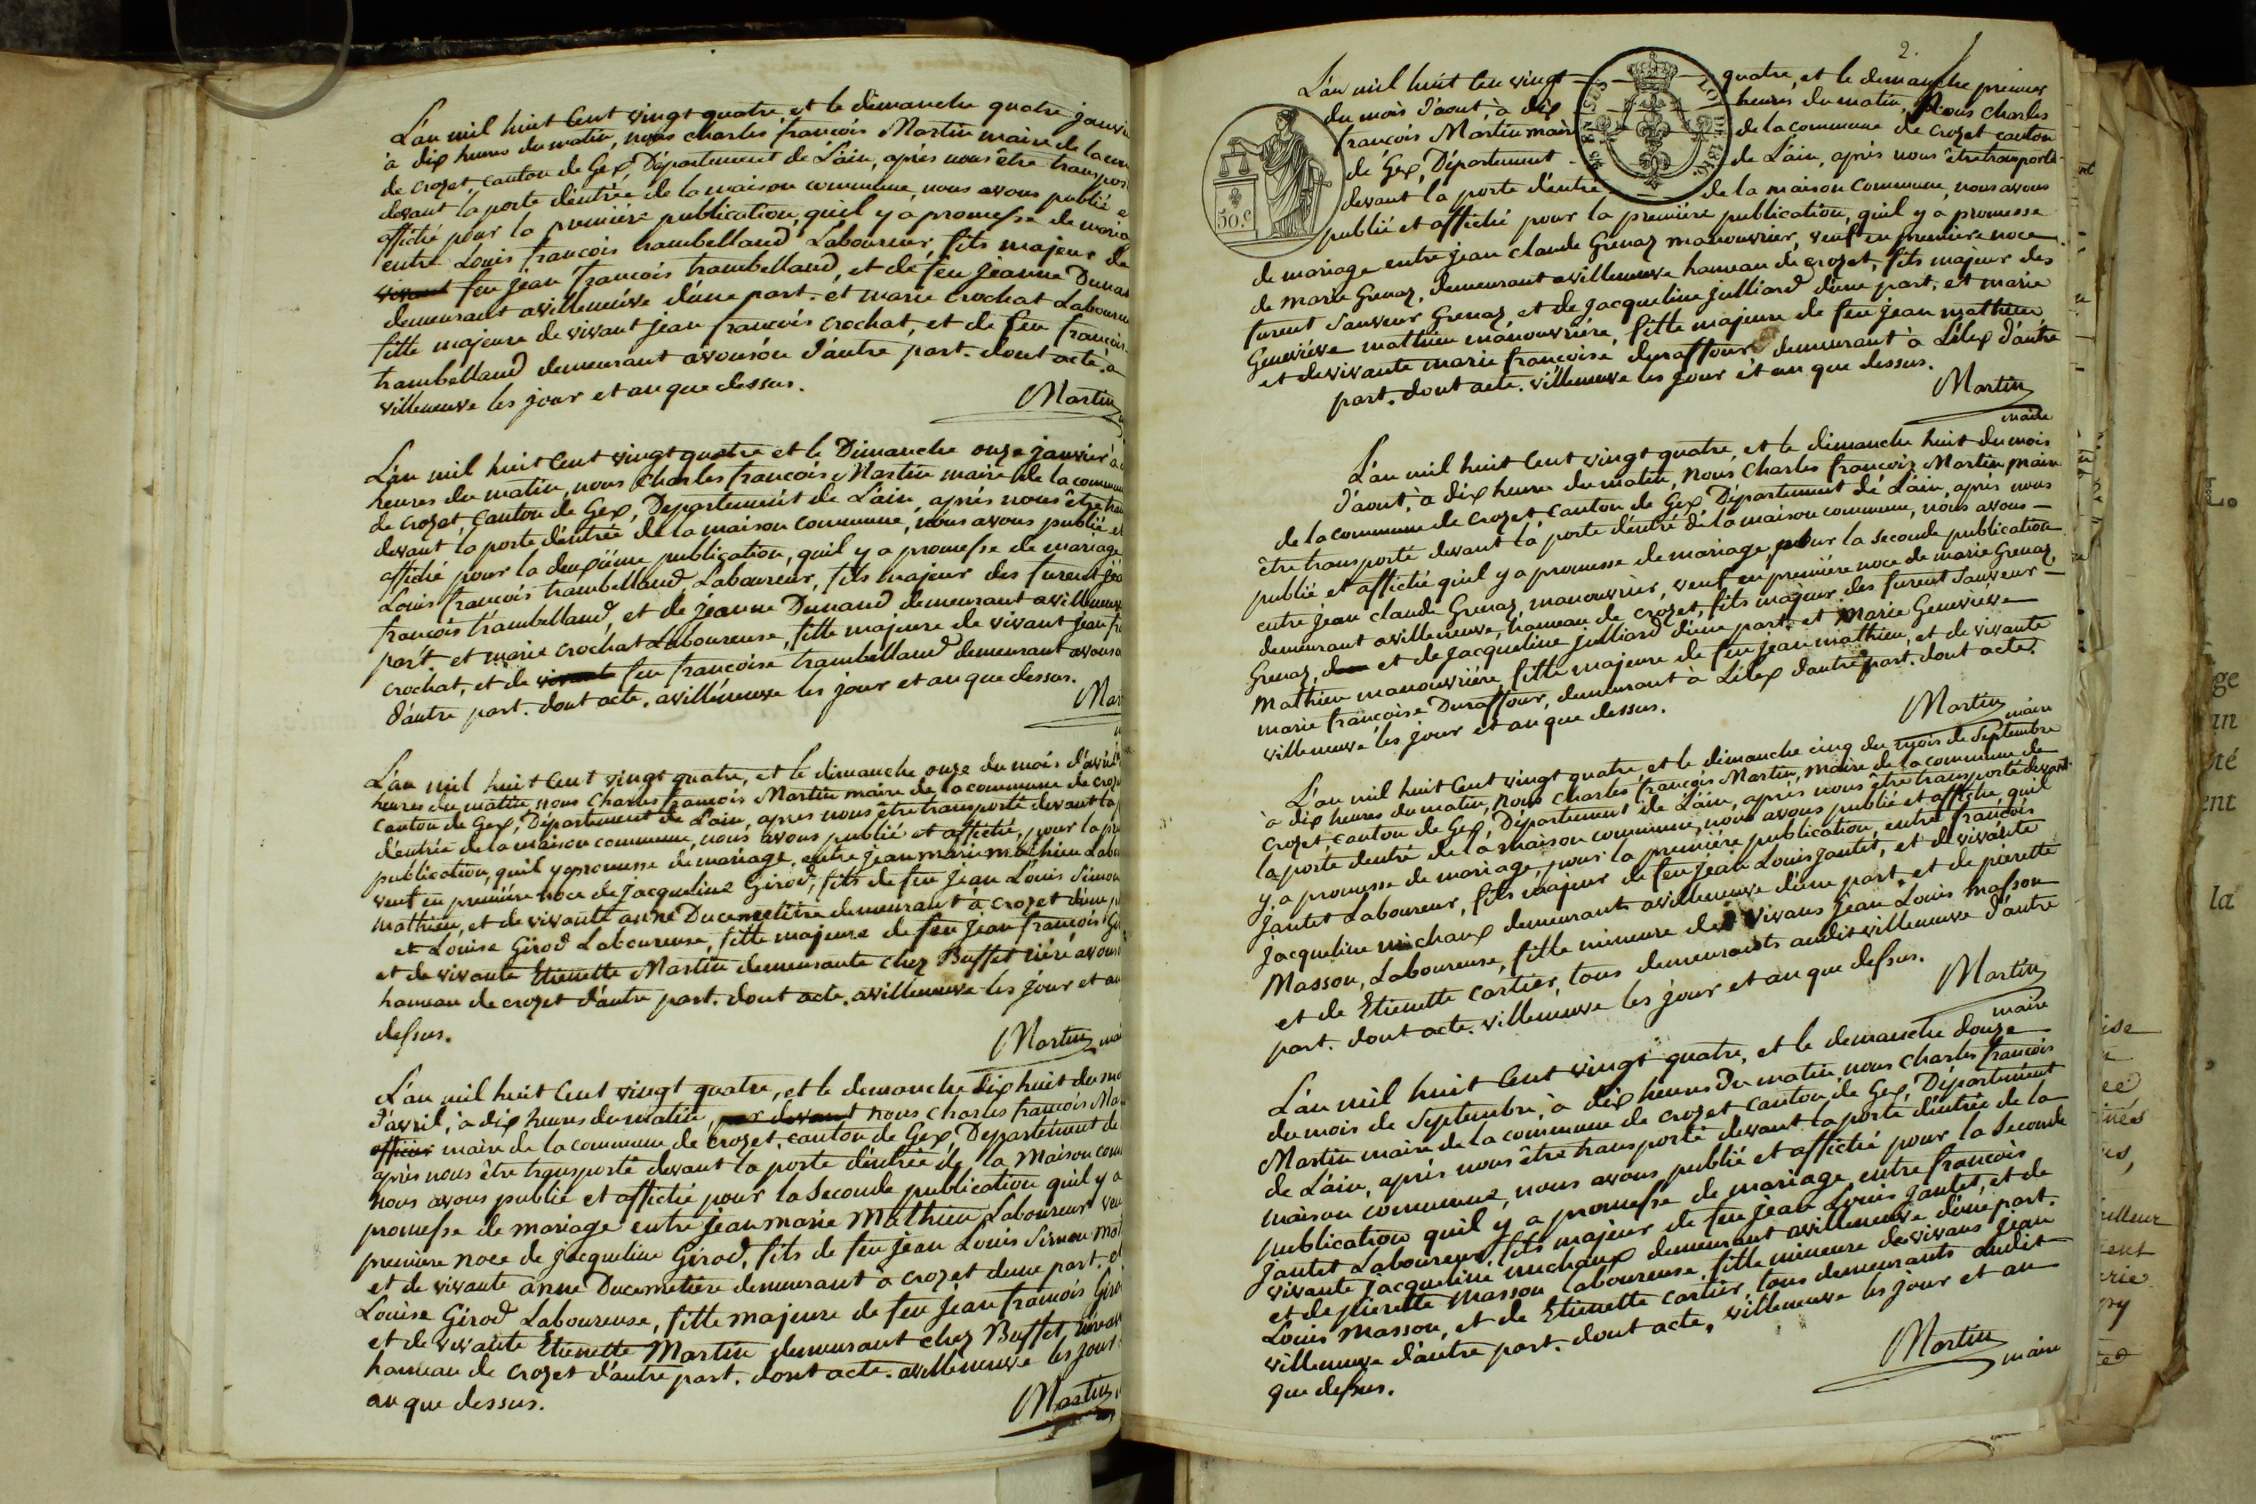 L'an mil huit Cent vingt quatre, et le dimanche quatre janvi
à dix heures du matin, nous charles françois Martin maire de la com
de crozet, canton de Gex, Département de L'ain, après nous être transpor
devant la porte d'entrée de la maison commune, nous avons publié e
affiché pour la première publication, quil y à promesse de maria
entre Louis françois trambelland Laboureur, fils majeur de
vivant feu jean françois trambelland, et de feu jeanne Dunan
demeurant avilleneuve d'une part. et marie Crochat Laboureu
fille majeure de vivant jean françois crochat, et de feu françois
trambelland demeurant avousön d'autre part. dont acte. a
villeneuve les jour et an que dessus.
Martin
L'an mil huit Cent vingt quatre et le Dimanche onze janvier à
heures du matin, nous Charles françois Martin maire de la commun
de crozet, Canton de Gex, Departement de L'ain, après nous être tran
devant la porte d'entrée de la maison commune, nous avons publié et
affiché pour la deuxiême publication, quil y a promesse de mariage
Louis françois trambelland Laboureur, fils majeur des furent jea
françois trambelland, et de jeanne Dunand demeurant avilleneuve
part. et marie crochat Laboureuse, fille majeure de vivant jean fr
crochat, et de vivante feu françoise trambelland demeurant avouso
d'autre part. dont acte. avilleneuve les jour et an que dessus.
Mar
L'an mil huit Cent vingt quatre, et le dimanche onze du mois d'avril
heures du matin, nous Charles françois Martin maire de la commune de croz
canton de Gex, Département de L'ain, après nous être transporté devant la
d'entrée de la maison commune, nous avons publié et affiché, pour la pr
publication, quil y a promesse de mariage, entre jean marie mathieu Labou
veuf en première noce de jacqueline Girod, fils de feu jean Louis Simon
mathieu, et de vivante anne Ducemetière demeurant à crozet d'une p
et Louise Girod Laboureuse, fille majeure de feu jean françois Gi
et de vivante Etienette Martin demeurante chez Buffet rièré avouso
hameau de crozet d'autre part. dont acte. avilleneuve les jour et an
dessus.
Martin mai
L'an mil huit Cent vingt quatre, et le dimanche dix huit du mo
d'avril, à dix heures du matin, par devant nous charles françois Ma
officier maire de la commune de crozet, canton de Gex, Departement de
après nous être transporté devant la porte d'entrée de la Maison com
nous avons publié et affiché pour la Seconde publication quil y a
promesse de mariage entre jean marie Mathieu Laboureur veu
première noce de jacqueline Girod, fils de feu jean Louis Simon Mat
et de vivante anne Ducemetière demeurant à crozet d'une part. et
Louise Girod Laboureuse, fille majeure de feu jean françois Giro
et de vivante Etienette Martin demeurant chez Buffet, rièreav
hameau de crozet d'autre part. dont acte. avilleneuve les jour
an que dessus.
Martin
2.
L'an mil huit Cen vingt quatre, et le dimanche premier
du mois d'aout, à dix heures du matin, Nous Charles
françois Martin maire de la commune de crozet canton
de Gex, Département de L'ain, après nous être transporté
devant la porte d'entré de la maison Commune, nous avons
publié et affiché pour la première publication, quil y a promesse
de mariage entre jean claude Grenaz manouvrier, veuf en première noce
de marie Grenaz, demeurant avilleneuve hameau de crozet, fils majeur des
furent Sauveur Grenaz et de jacqueline julliard d'une part. et marie
Geneviève mathieu manouvrière, fille majeure de feu jean mathieu
et de vivante marie françoise duraffour demeurant à Lélex d'autre
part. dont acte. villeneuve les jour et an que dessus.
Martin
maire
L'an mil huit Cent vingt quatre, et le dimanche huit du mois
d'aout, à dix heures du matin, Nous Charles françois Martin maire
de la commune de crozet, canton de Gex, Département de L'ain, après nous
être transporté devant la porte d'entré de la maison commune, nous avons
publié et affiché quil y a promesse de mariage, pour la seconde publication
entre jean claude Grenaz, manouvrier, veuf en première noce de marie Grenaz
demeurant avilleneuve, hameau de crozet, fils majeur des furent Sauveur
Grenaz, et de jacqueline Julliard d'une part, et Marie Geneviève
Mathieu manouvrière, fille majeure de feu jean mathieu, et de vivante
marie françoise Duraffour, demeurant à Lélex d'autre part. dont acte.
villeneuve les jour et an que dessus.
Martin maire
L'an mil huit Cent vingt quatre, et le dimanche cinq du mois de Septembre
à dix heures du matin, Nous Charles françois Martin, maire de la commune de
crozet, canton de Gex, Département de L'ain, après nous être transporté devant
la porte d'entré de la maison commune, nous avons publié et affiché quil
y, a promesse de mariage, pour la première publication, entre françois
Jantet Laboureur, fils majeur de feu jean Louis jantet, et de vivante
jacqueline michaux demeurants avilleneuve d'une part, et de pierette
Masson, Laboureuse, fille mineure de vivans jean Louis Masson
et de Etienette cartier, tous demeurants audit villeneuve d'autre
part. dont acte. villeneuve les jour et an que dessus.
Martin
maire
L'an mil huit Cent vingt quatre, et le dimanche douze
du mois de Septembre, à dix heures du matin nous Charles françois
Martin maire de la commune de crozet canton de Gex, Département
de L'ain, après nous être transporté devant la porte d'entrée de la
maison commune, nous avons publié et affiché pour la Seconde
publication quil y a promesse de mariage, entre françois
jantet Laboureur, fils majeur de feu jean Louis jantet, et de
vivante jacqueline michaux demeurant avilleneuve d'une part.
et de pierette Masson Laboureuse, fille mineure de vivans jean
Louis Masson, et de Etienette cartier, tous demeurants audit
villeneuve d'autre part. dont acte, villeneuve les jour et an
que dessus.
Martin maire
LOI DE 1816.
50.c